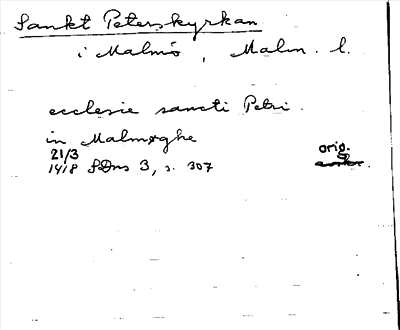 Sankt Peterskyrkan
i Malmö, Malm. l.
ecclesie sancti Petri.
in Malmøghe
21/3
1418 SDns 3, s. 307
orig.